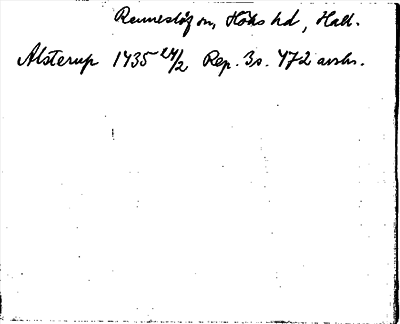 Renneslöv sn, Höks hd, Hall.
Alsterup 1435 24/2 Rep. 3s. 472 avskr.